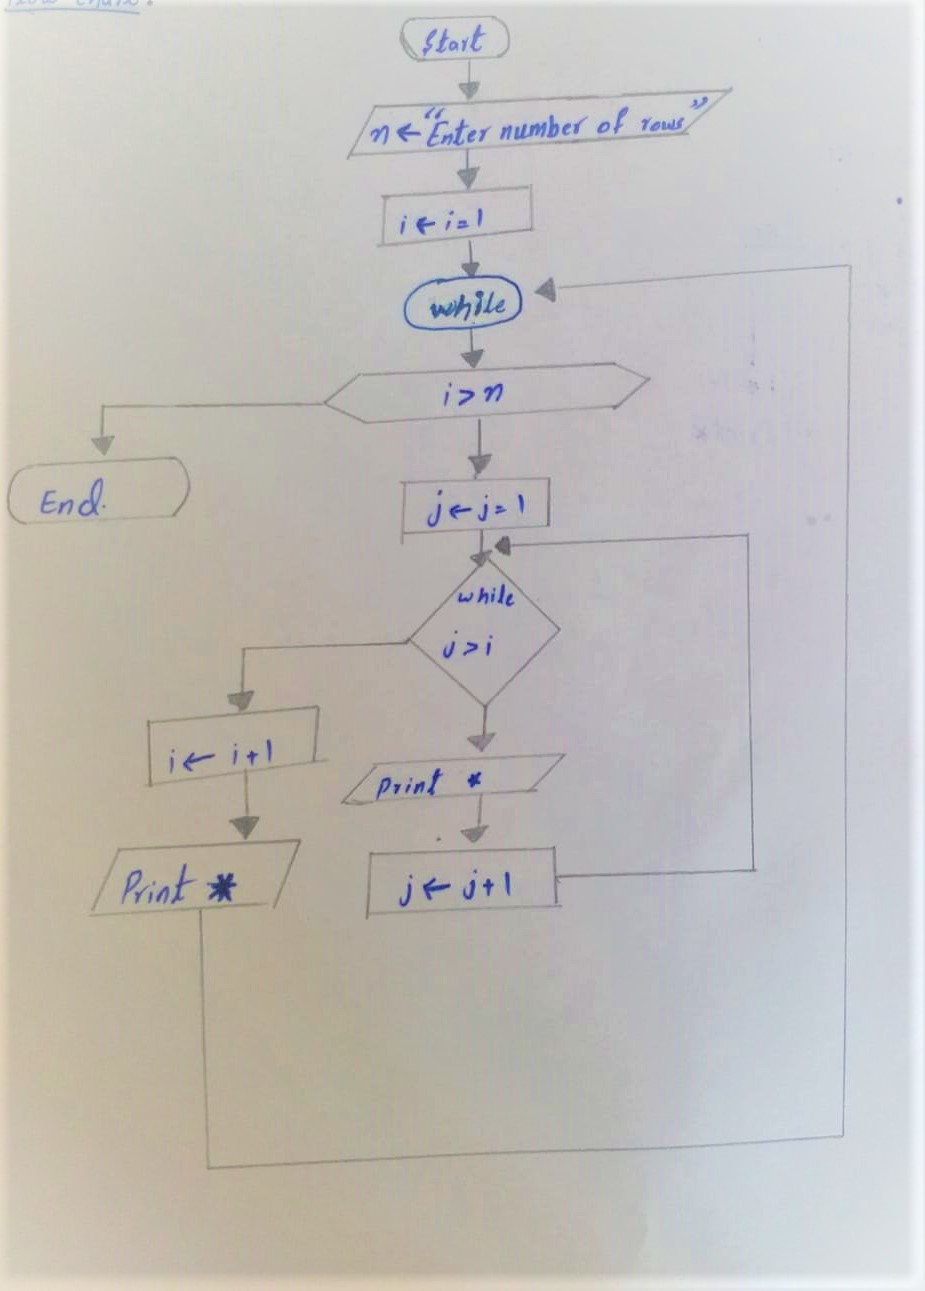 Flow chart:
Start
n ← "Enter number of rows"
i ← i=1
while
i > n
End.
j ← j=1
while
j > i
i ← i+1
Print *
Print *
j ← j+1